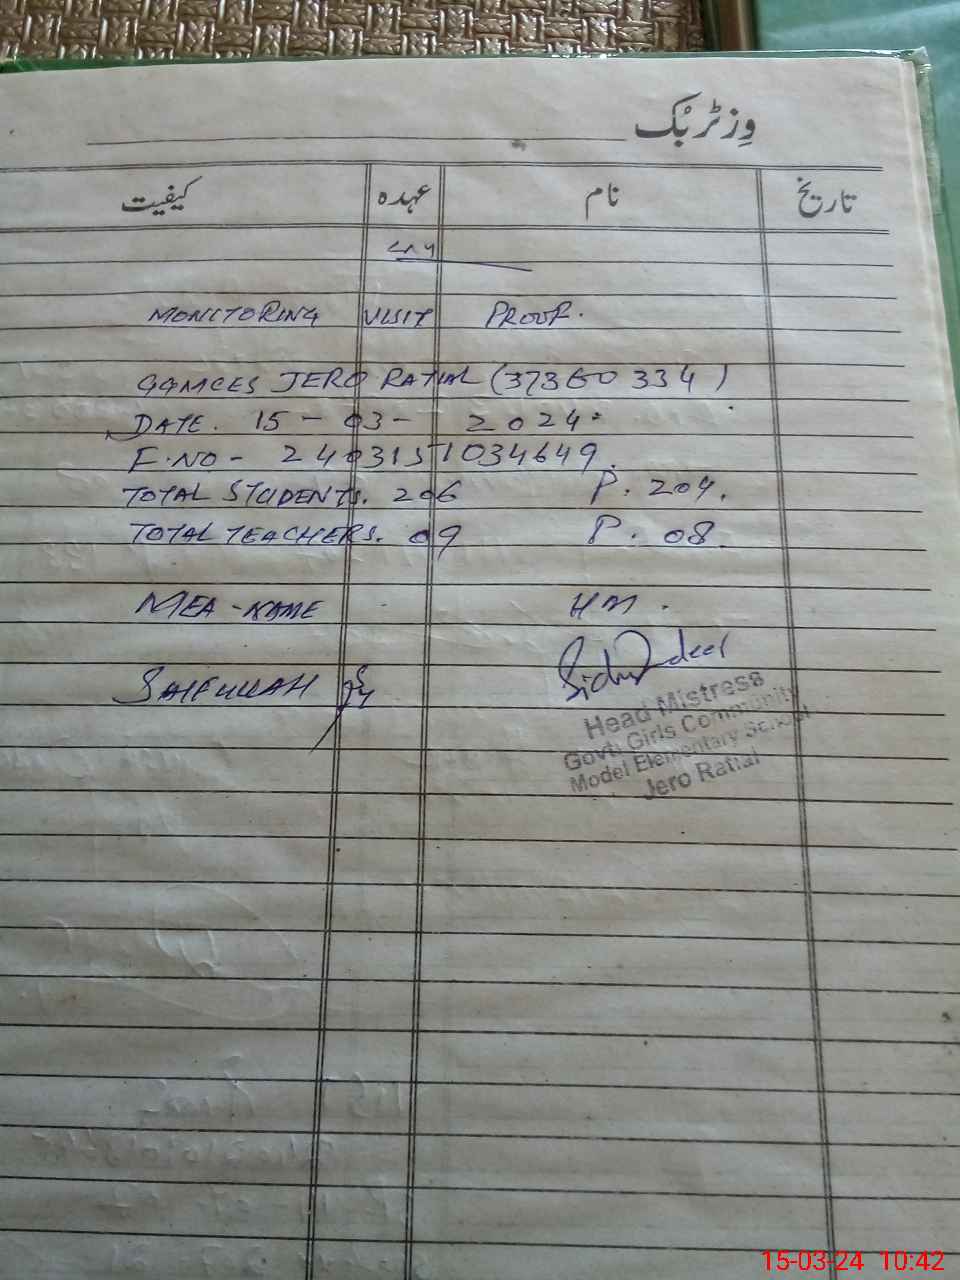 وِزٹر بُک
تاریخ نام عہدہ کیفیت
MONITORING VISIT PROOF.
GGMCES JERO RATIAL (37360334)
DATE. 15-03-2024.
F.NO- 2403151034649.
TOTAL STUDENTS. 206 P. 204.
TOTAL TEACHERS. 09 P. 08.
MEA-NAME HM.
SAIFULLAH
Head Mistress
Govt: Girls Community
Model Elementary School
Jero Ratial
15-03-24 10:42